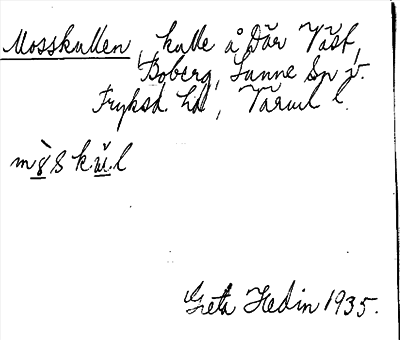 Mosskullen, kulle å Där Väst,
Boberg, Sunne Sn jr.
Fryksd. hd, Värml l.
Greta Hedin 1935.